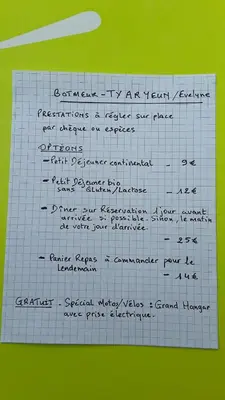 BOTMEUR - TY AR YEUN / Evelyne
PRESTATIONS à régler sur place
par chèque ou espèces
OPTIONS
- Petit Déjeuner continental - 9€
- Petit Déjeuner bio
sans Gluten/Lactose - 12€
- Dîner sur Réservation 1 jour avant
arrivée si possible. Sinon, le matin
de votre jour d'arrivée.
- 25€
- Panier Repas à commander pour le
lendemain - 14€
GRATUIT - Spécial Motos/Vélos : Grand Hangar
avec prise électrique.